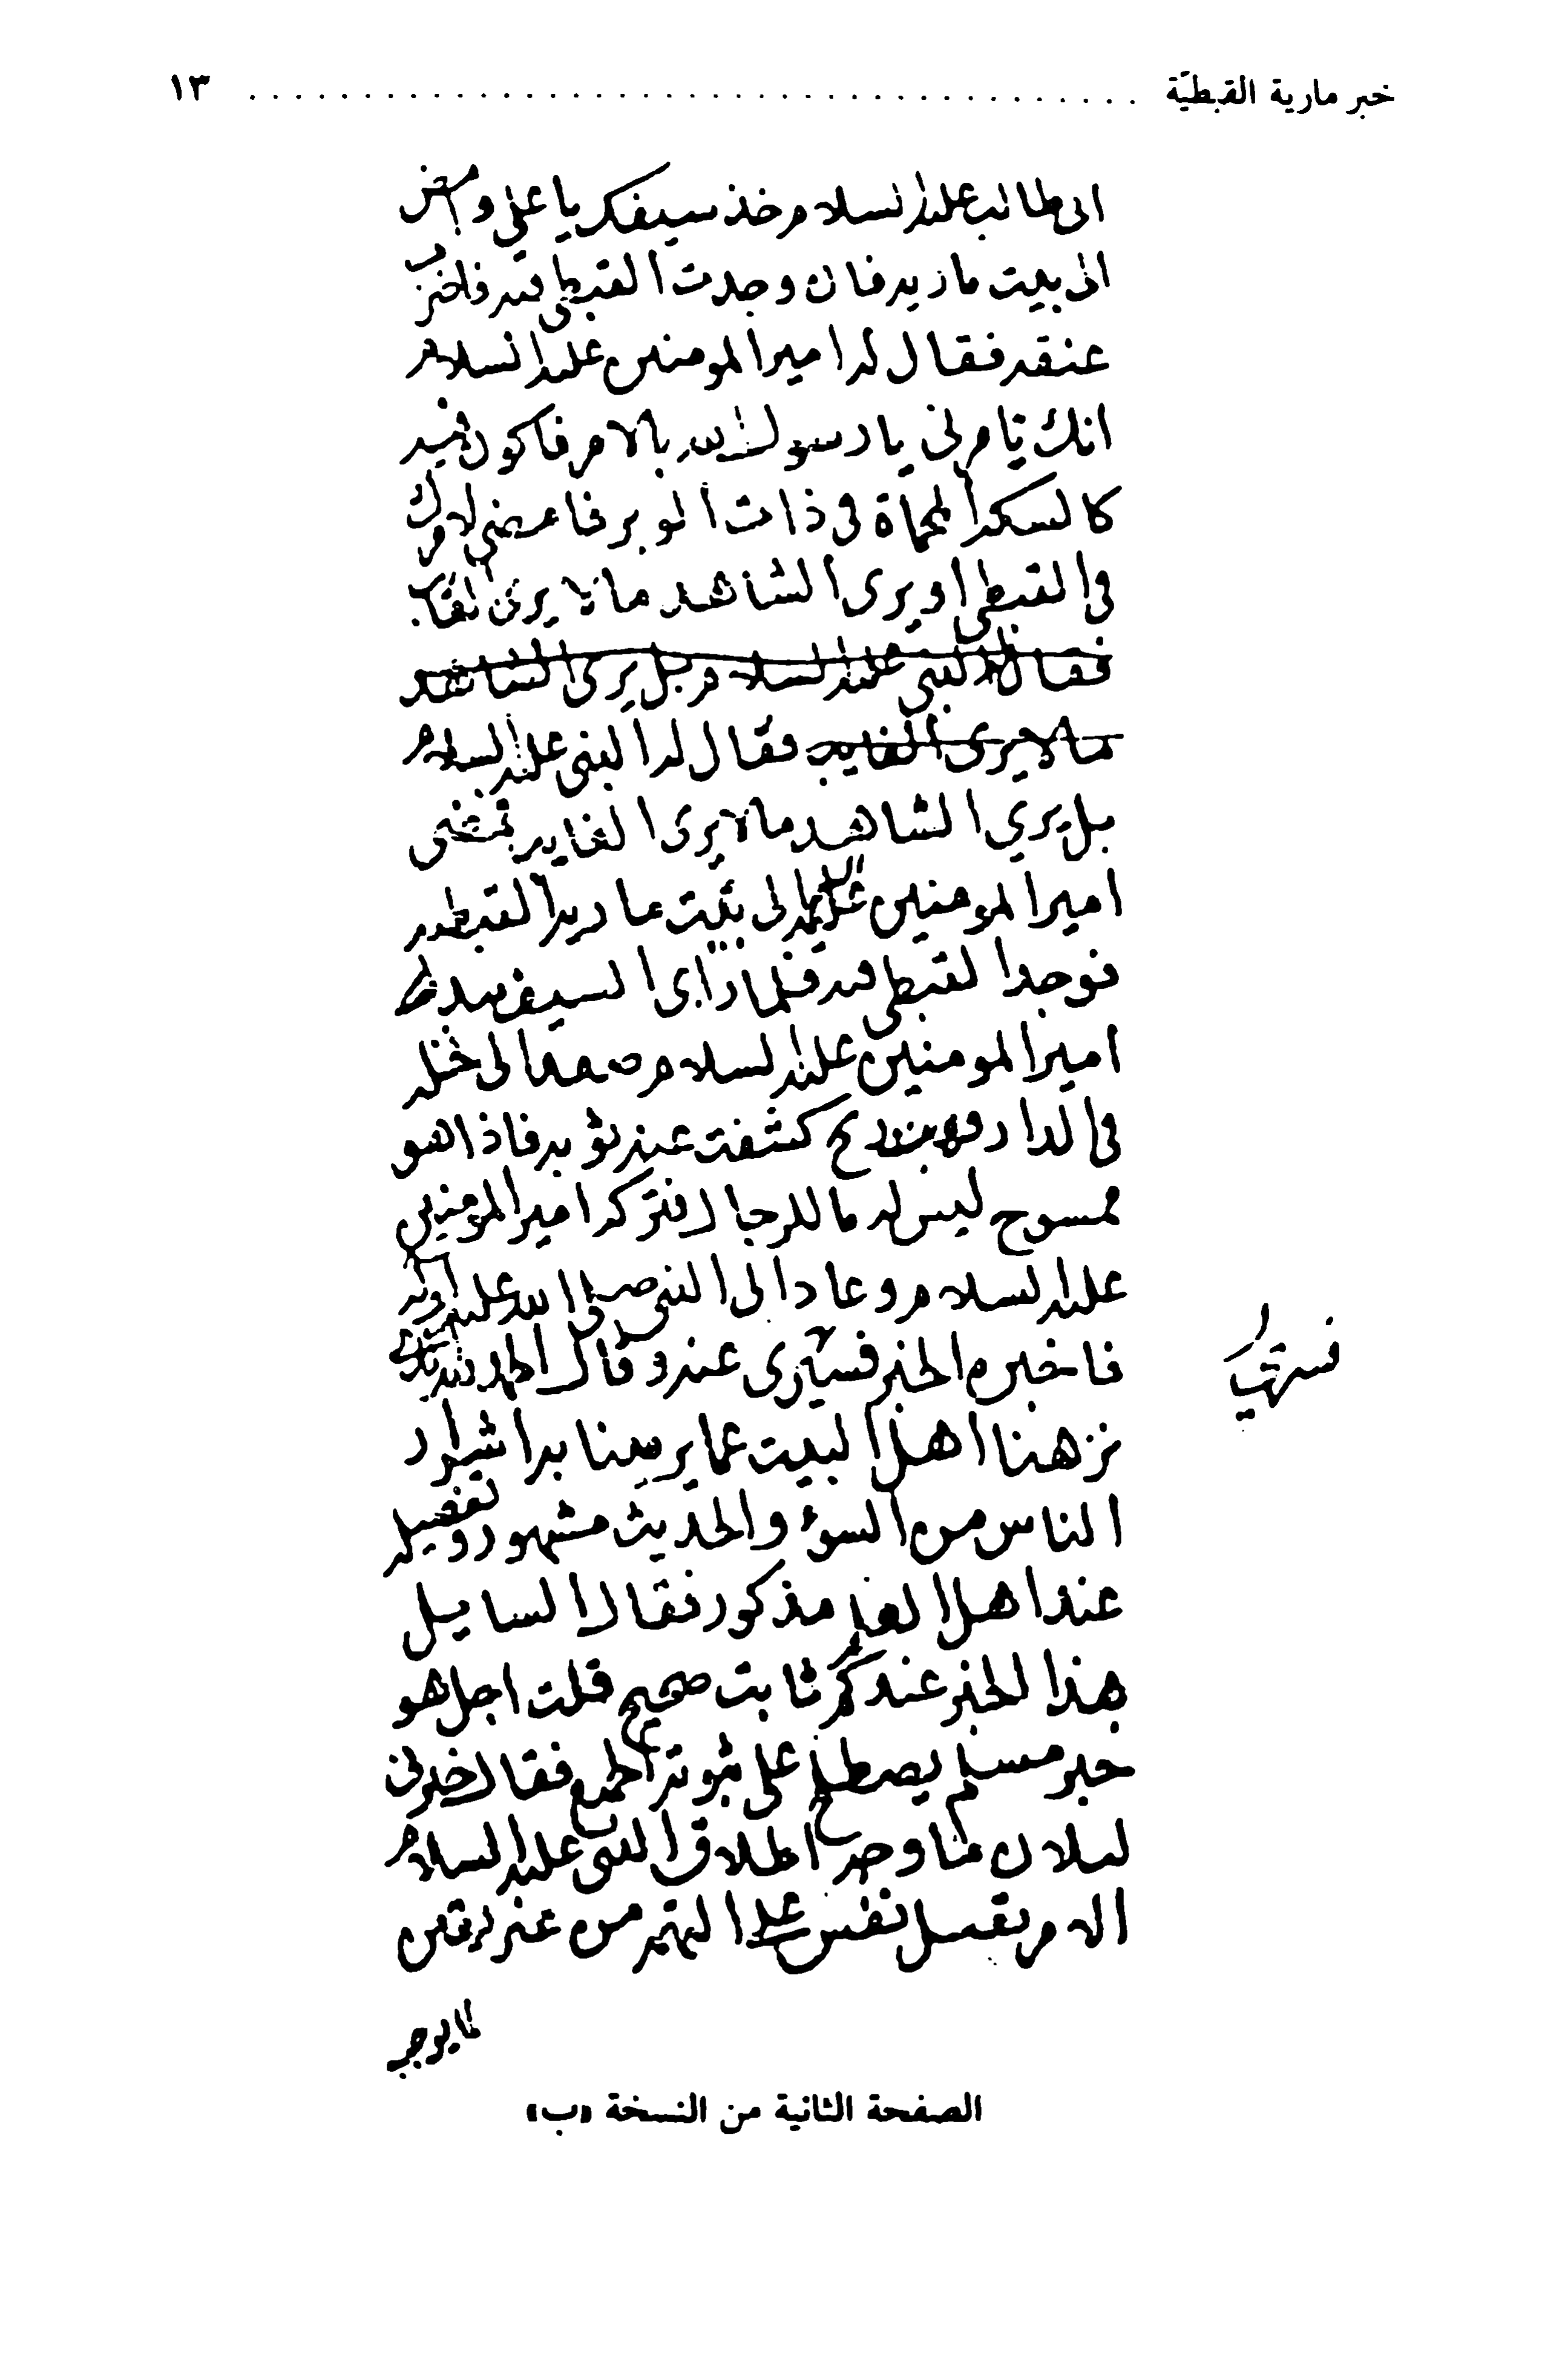 خبر مارية القبطيّة ........................................ ١٣
ابى طالب عليه السلام خذ سيفك يا على وامض
الى بيت ماريه فان وجدت القبطى فيه فاضرب
عنقه فقال له امير المومنين عليه السلام
انك تامرنى يا رسول الله بالامر فاكون فيه
كالسكة المحماة فى ذات الوبر فامضى لامرك
فى القبطى او يرى الشاهد ما لا يرى الغايب
فقال له النبى عليه السلام بل يرى الشاهد
ما لا يرى الغايب فقال له النبى عليه السلام
بل يرى الشاهد ما لا يرى الغايب فمضى
امير المومنين الى بيت ماريه القبطيه
فوجد القبطى فيه فلما راى السيف بيد
امير المومنين عليه السلام صعد الى نخله
فى الدار فهبت ريح كشفت عنه ثوبه فاذا هو
ممسوح ليس له ما للرجال فتركه امير المومنين
عليه السلام وعاد الى النبى صلى الله عليه وآله
فاخبره الخبر فسرى عنه وقال الحمد لله الذى
فسرتهيا
نزهنا اهل البيت عما يرمينا به اشرار
الناس من السوء والحديث مشهور وتفصيله
عند اهل العلم مذكور فقال السايل
هذا الخبر عندكم ثابت صحيح قلت اجل هو
خبر مسلم يصطلح على ثبوته الجميع فقال خبرنى
لبلان ما وجه اطلاق النبى عليه السلام
الامر بقتل نفس على التهمه من غير يقين
لما يوجب
الصفحة الثانية من النسخة «ب»